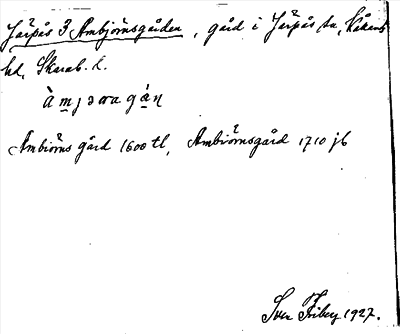 Järpås 3 Ambjörnsgården, gård i Järpås sn, Kåkinds
hd, Skarab. l.
àmjɔrnagán
Ambiörns gård 1600 tl, Ambiörnsgård 1710 jb
Sven Friberg 1927.